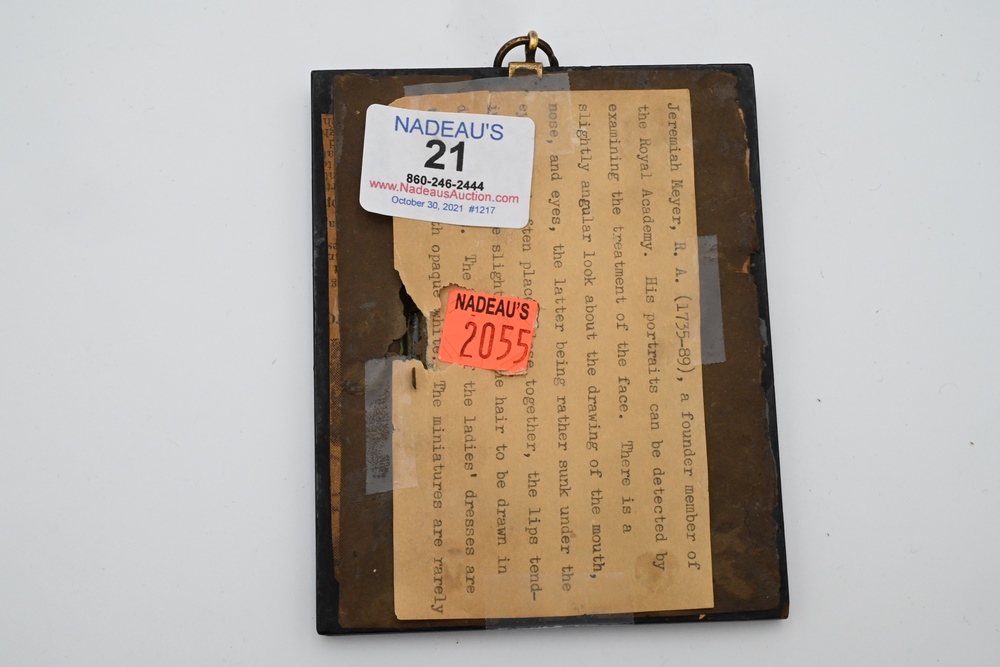 NADEAU'S
21
860-246-2444
www.NadeausAuction.com
October 30, 2021 #1217
NADEAU'S
2055
Jeremiah Meyer, R. A. (1735-89), a founder member of
the Royal Academy. His portraits can be detected by
examining the treatment of the face. There is a
slightly angular look about the drawing of the mouth,
nose, and eyes, the latter being rather sunk under the
together, the lips tend-
hair to be drawn in
The the ladies' dresses are
opaque white. The miniatures are rarely